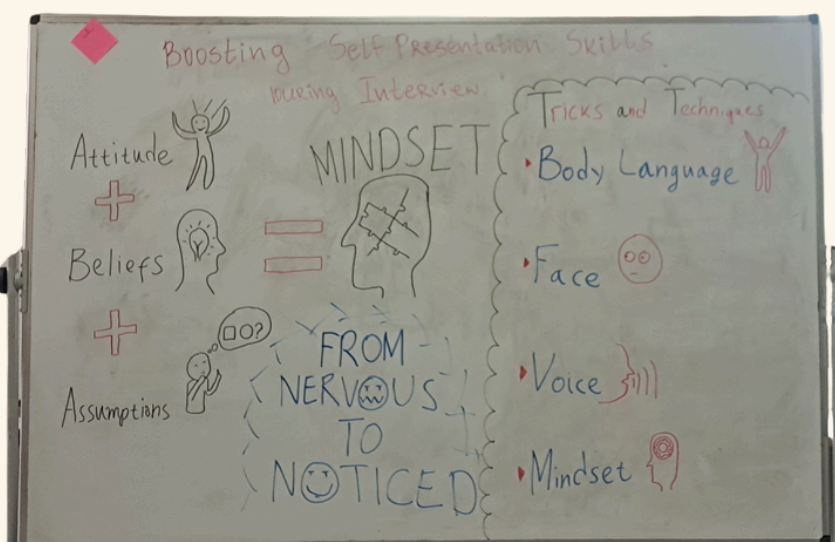 Boosting Self Presentation Skills
During Interview
Attitude
+
Beliefs
+
Assumptions
=
MINDSET
□○?
FROM
NERVOUS
TO
NOTICED
Tricks and Techniques
Body Language
Face
Voice
Mindset